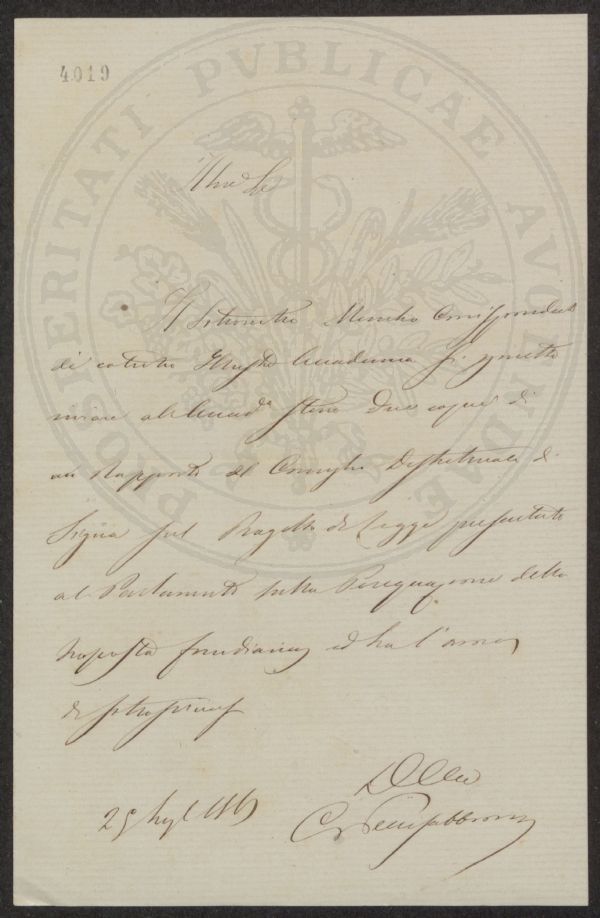 4.019
PROSPERITATI PVBLICAE AVGENDAE
Il sottoscritto Membro Corrispondente
di cotesta Illustre Accademia si permette
inviare all'Accad.a stessa due copie di
un Rapporto del Consiglio Distrettuale di
Signa sul Progetto di Legge presentato
al Parlamento sulla Perequazione della
Imposta fondiaria ed ha l'onore
di
29 1863